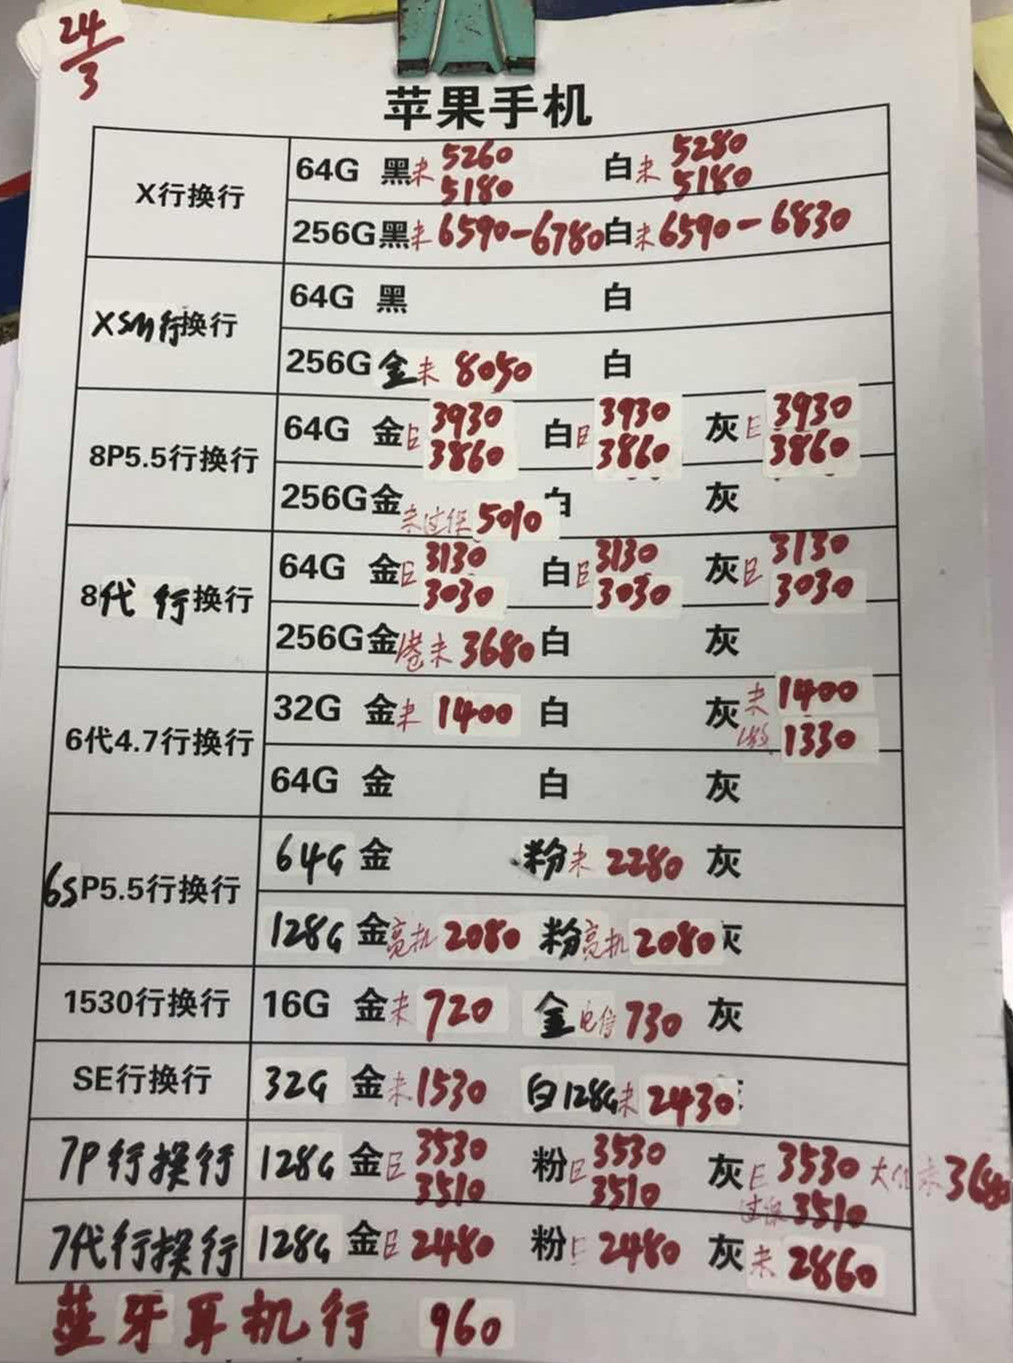 24
3
苹果手机
X行换行
64G 黑未 5260 5180 白未 5280 5180
256G黑未6590-6780白未6590-6830
XSM行换行
64G 黑 白
256G 金未 8050 白
8P5.5行换行
64G 金日 3930 3860 白日 3930 3860 灰日 3930 3860
256G金未过保5010白 灰
8代 行换行
64G 金日 3130 3030 白日 3130 3030 灰日 3130 3030
256G金港未 3680白 灰
6代4.7行换行
32G 金未 1400 白 灰未 1400 1330
64G 金 白 灰
6SP5.5行换行
64G 金 粉未 2280 灰
128G 金亮机 2080 粉亮机 2080 灰
1530行换行
16G 金未 720 金电信 730 灰
SE行换行
32G 金未1530 白128G未 2430
7P行换行
128G 金日 3530 3510 粉日 3530 3510 灰日 3530 未3680 过保 3510
7代行换行
128G 金日 2480 粉日 2480 灰未 2860
蓝牙耳机行 960